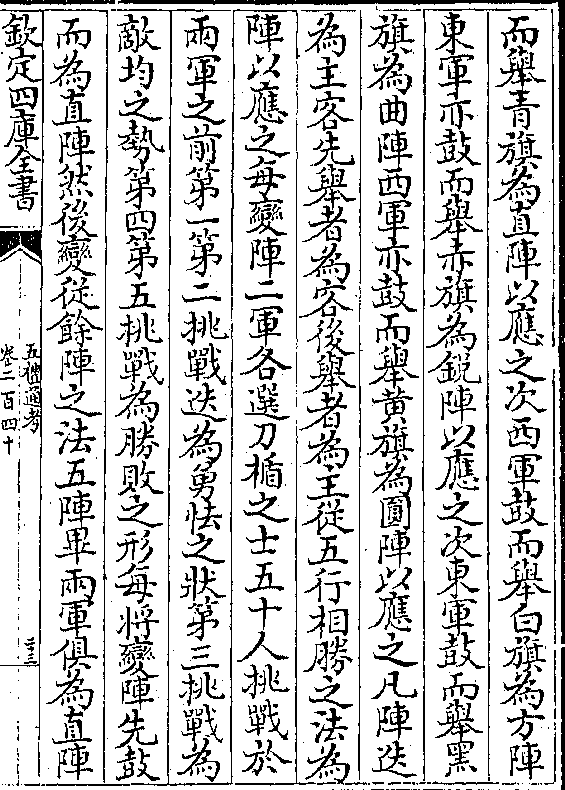 而舉青旗為直陣以應之次西軍鼓而舉白旗為方陣
東軍亦鼓而舉赤旗為銳陣以應之次東軍鼓而舉黑
旗為曲陣西軍亦鼓而舉黄旗為圓陣以應之凡陣迭
為主客先舉者為客後舉者為主從五行相勝之法為
陣以應之每變陣二軍各選刀楯之士五十人挑戰於
兩軍之前第一第二挑戰迭為勇怯之狀第三挑戰為
敵均之勢第四第五挑戰為勝敗之形每將變陣先鼓
而為直陣然後變從餘陣之法五陣畢兩軍俱為直陣
欽定四庫全書
五禮通考
卷二百四十
二十三